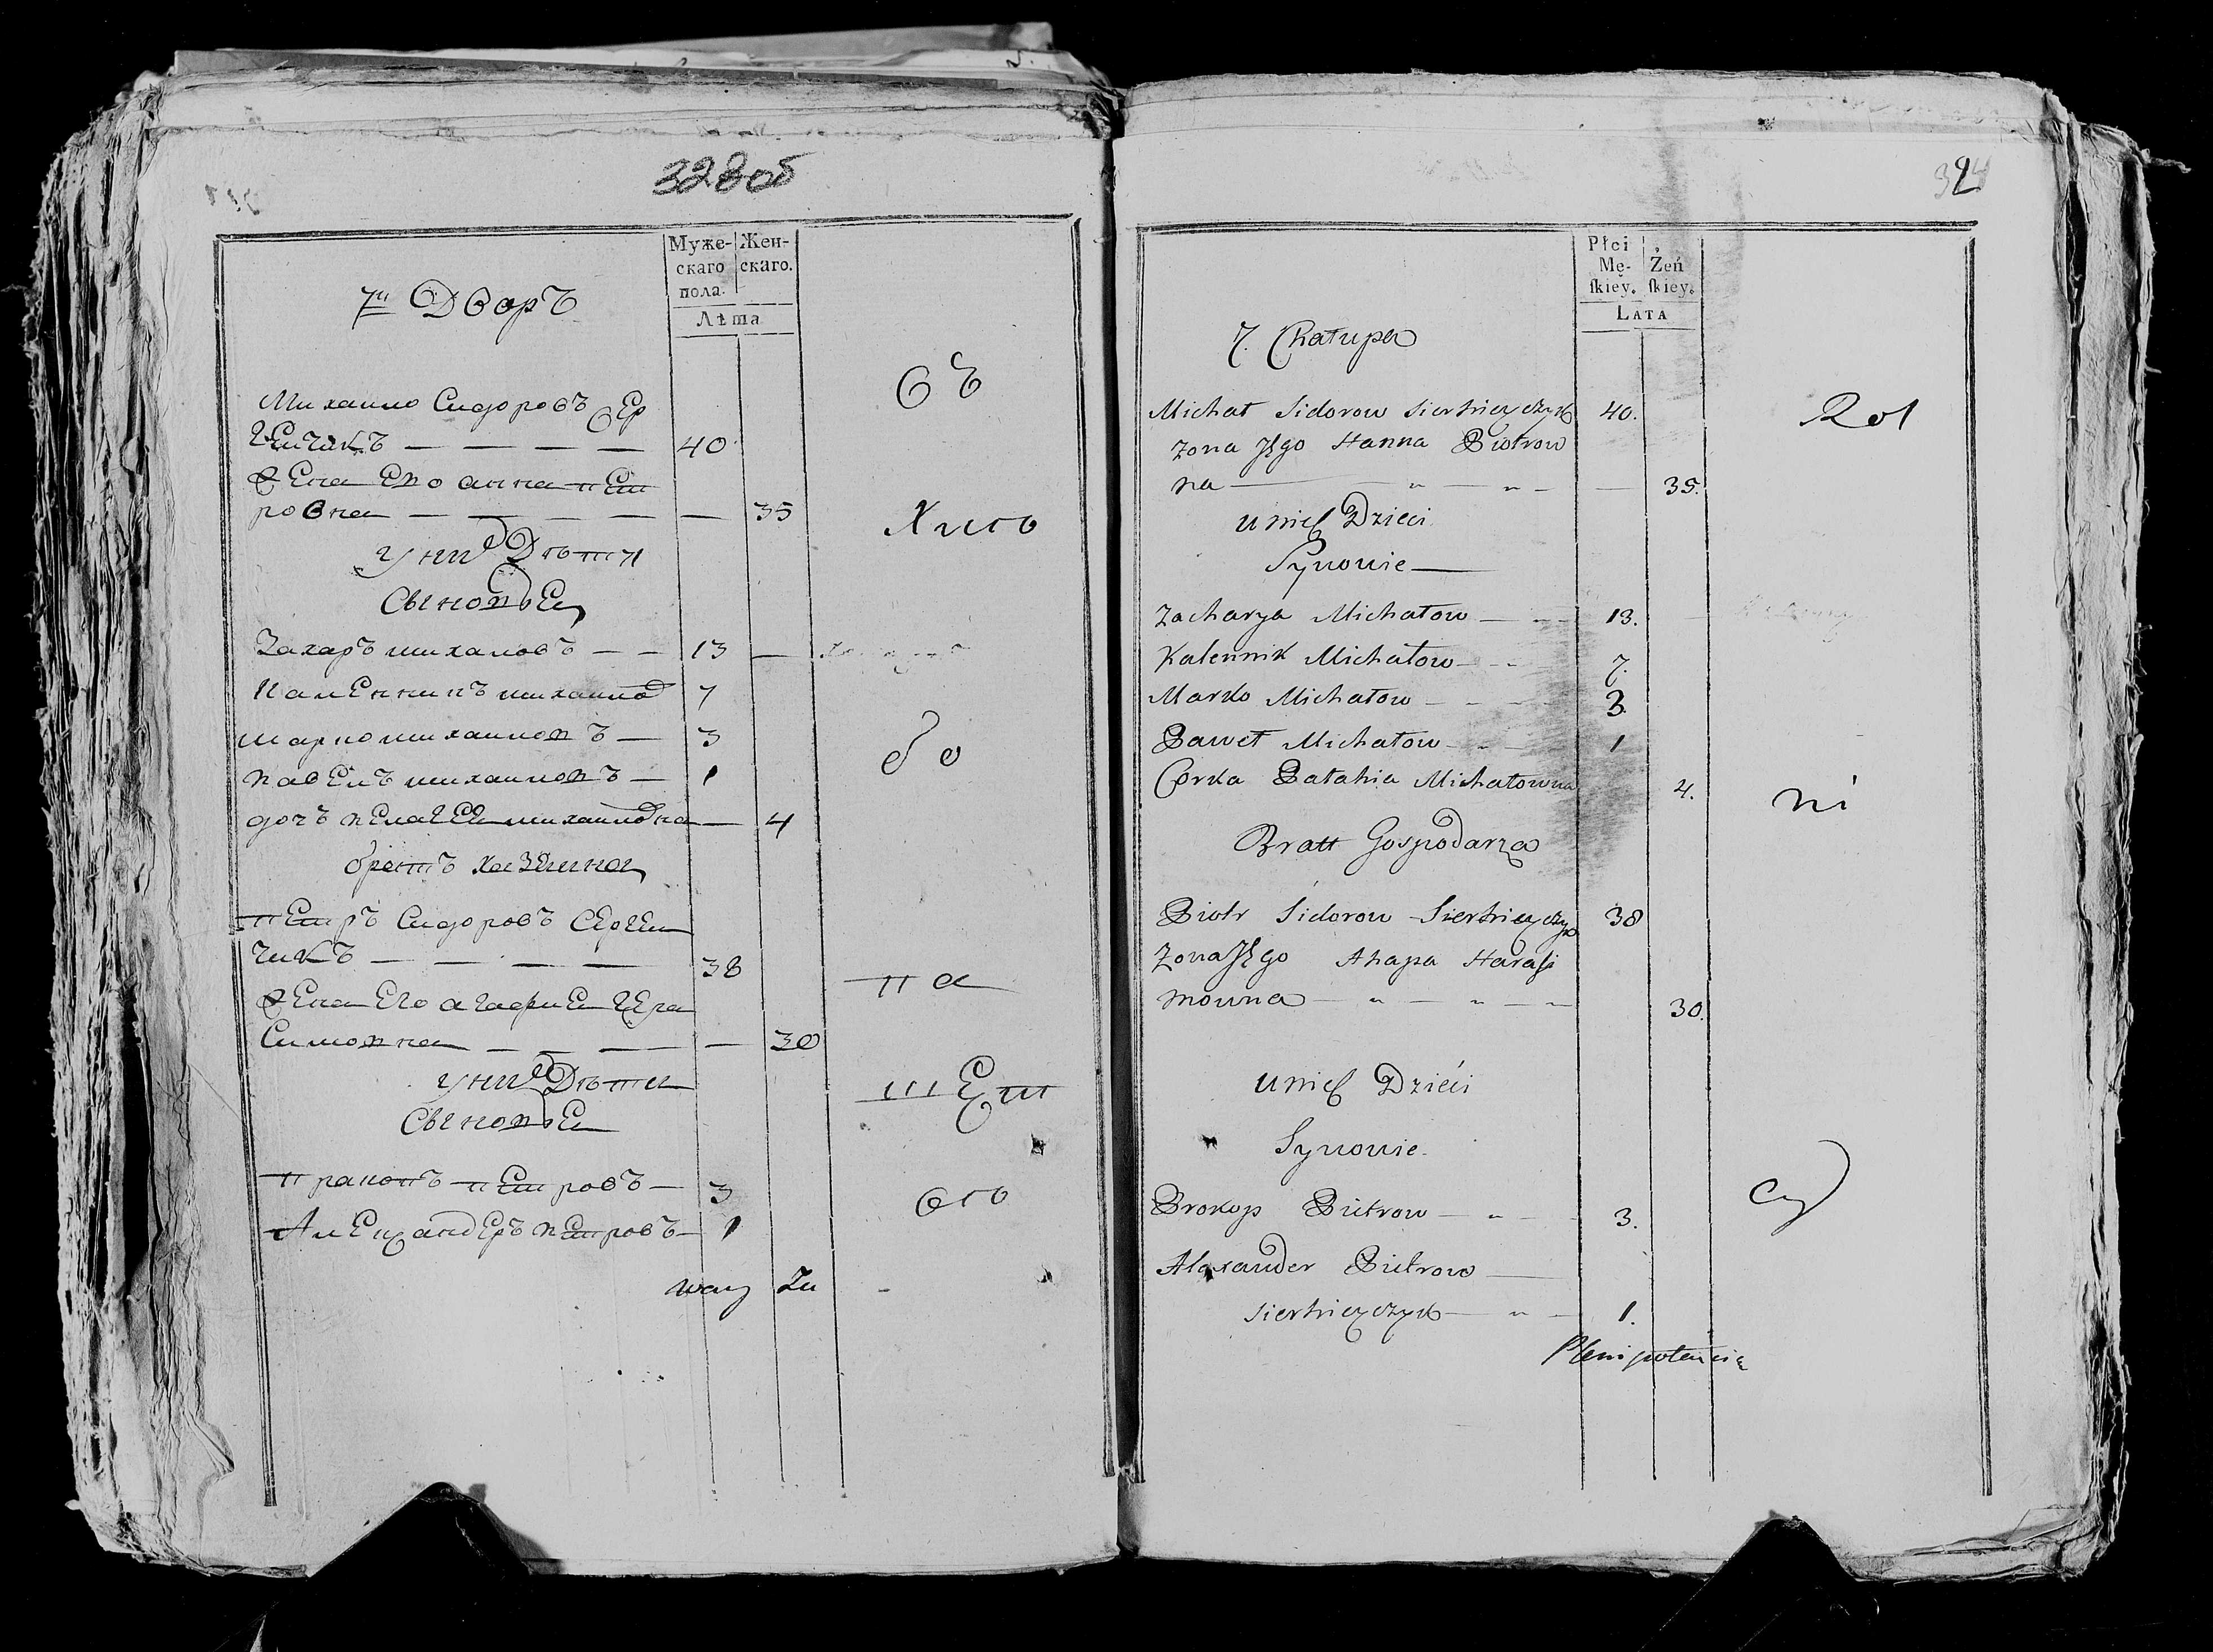 328об
Муже- Жен-
скаго скаго.
пола
Лѣта
7й Дворъ
Съ
Михаило Сидоровъ Сер
геичикъ — — — — 40
Жена Его анна пет
ровна — — — — — 35
Хизо
У них Дѣти
Сыновья
Захаръ михаловъ — — 13 —
Каленникъ михаилов 7
марко михаиловъ — 3
бо
павелъ михаиловъ — 1
дочъ пелагея михаиловна — 4
братъ хазяина
петръ Сидоровъ Сергеи
чикъ — — — — 38
па
Жена Его агафия гера
Симовна — — — — — 30
У них Дѣти
Сыновья
шеш
пракопъ петровъ — 3
Александеръ петровъ — 1
Płci Żeń
Mę- skiey.
skiey.
LATA
7. Chałupa
Michał Sidorow Sierhieyczyk 40.
Rol
Zona Jego Hanna Piotrow
na — „ — „ — — 35.
u nich Dzieci
Synowie —
Zacharya Michałow — — 13.
Kalennik Michałow — — 7.
Marko Michałow — — — 3
Paweł Michałow — — — 1
Corka Pałahia Michałowna 4.
ni
Bratt Gospodarza
Piotr Sidorow Sierhieyczyk 38
Zona Jego Ahapa Harasi
mowna — „ — „ — „ 30.
u nich Dzieci
Synowie.
Prokop Pietrow — „ — 3.
Alexander Pietrow —
Sierhieyczyk — „ — 1.
Plenipotencia